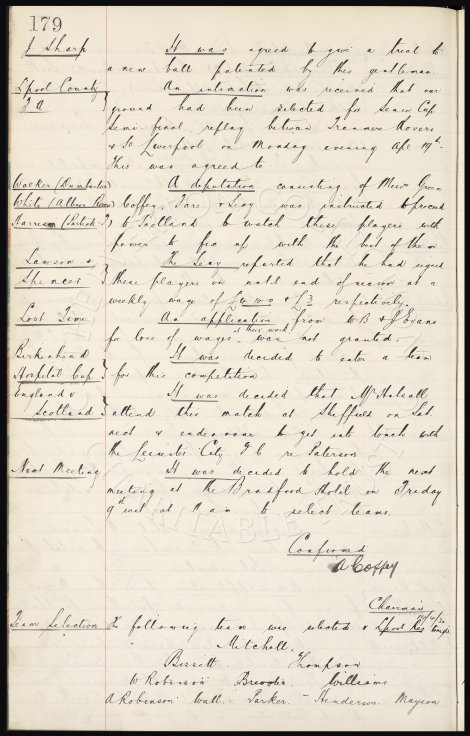 179
J Sharp It was agreed to give a trial to
a new ball patented by this gentleman.
Lpool County An intimation was received that our
F A ground had been selected for Senior Cup
Semi final replay between Tranmere Rovers
& So Liverpool on Monday evening Apl 19th.
This was agreed to
Walker (Dumbarton A deputation consisting of Messrs Green
White (Albion Rovers Coffey, Tare & Secy was instructed to proceed
Harrison (Partick T) to Scotland to watch these players with
power to fix up with the best of them
Lawson & The Secy reported that he had signed
Spencer these players on until end of season at a
weekly wage of & £3 respectively.
Lost Time An application from W B & J Evans
at their work
for loss of wages was not granted.
Birkenhead It was decided to enter a team
Hospital Cup for this competition
England v It was decided that Mr Halsall
Scotland attend this match at Sheffield on Sat
next & endeavour to get into touch with
the Leicester City F C re Paterson
Next Meeting It was decided to hold the next
meeting at the Bradford Hotel on Friday
9th inst at to select teams.
Confirmed
A Coffey
Chairman
Team Selection The following team was selected v Lpool Res
Mitchell.
Bissett. Thompson
W Robinson Brewster. Williams
A Robinson Wall. Parker. Henderson Mayson